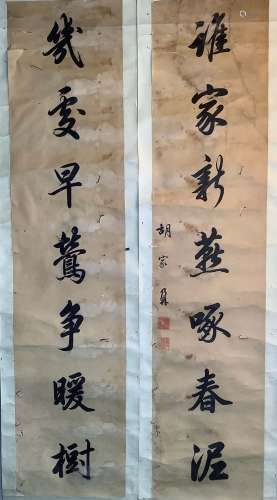 誰家新燕啄春泥
胡家
幾處早鶯争暖樹